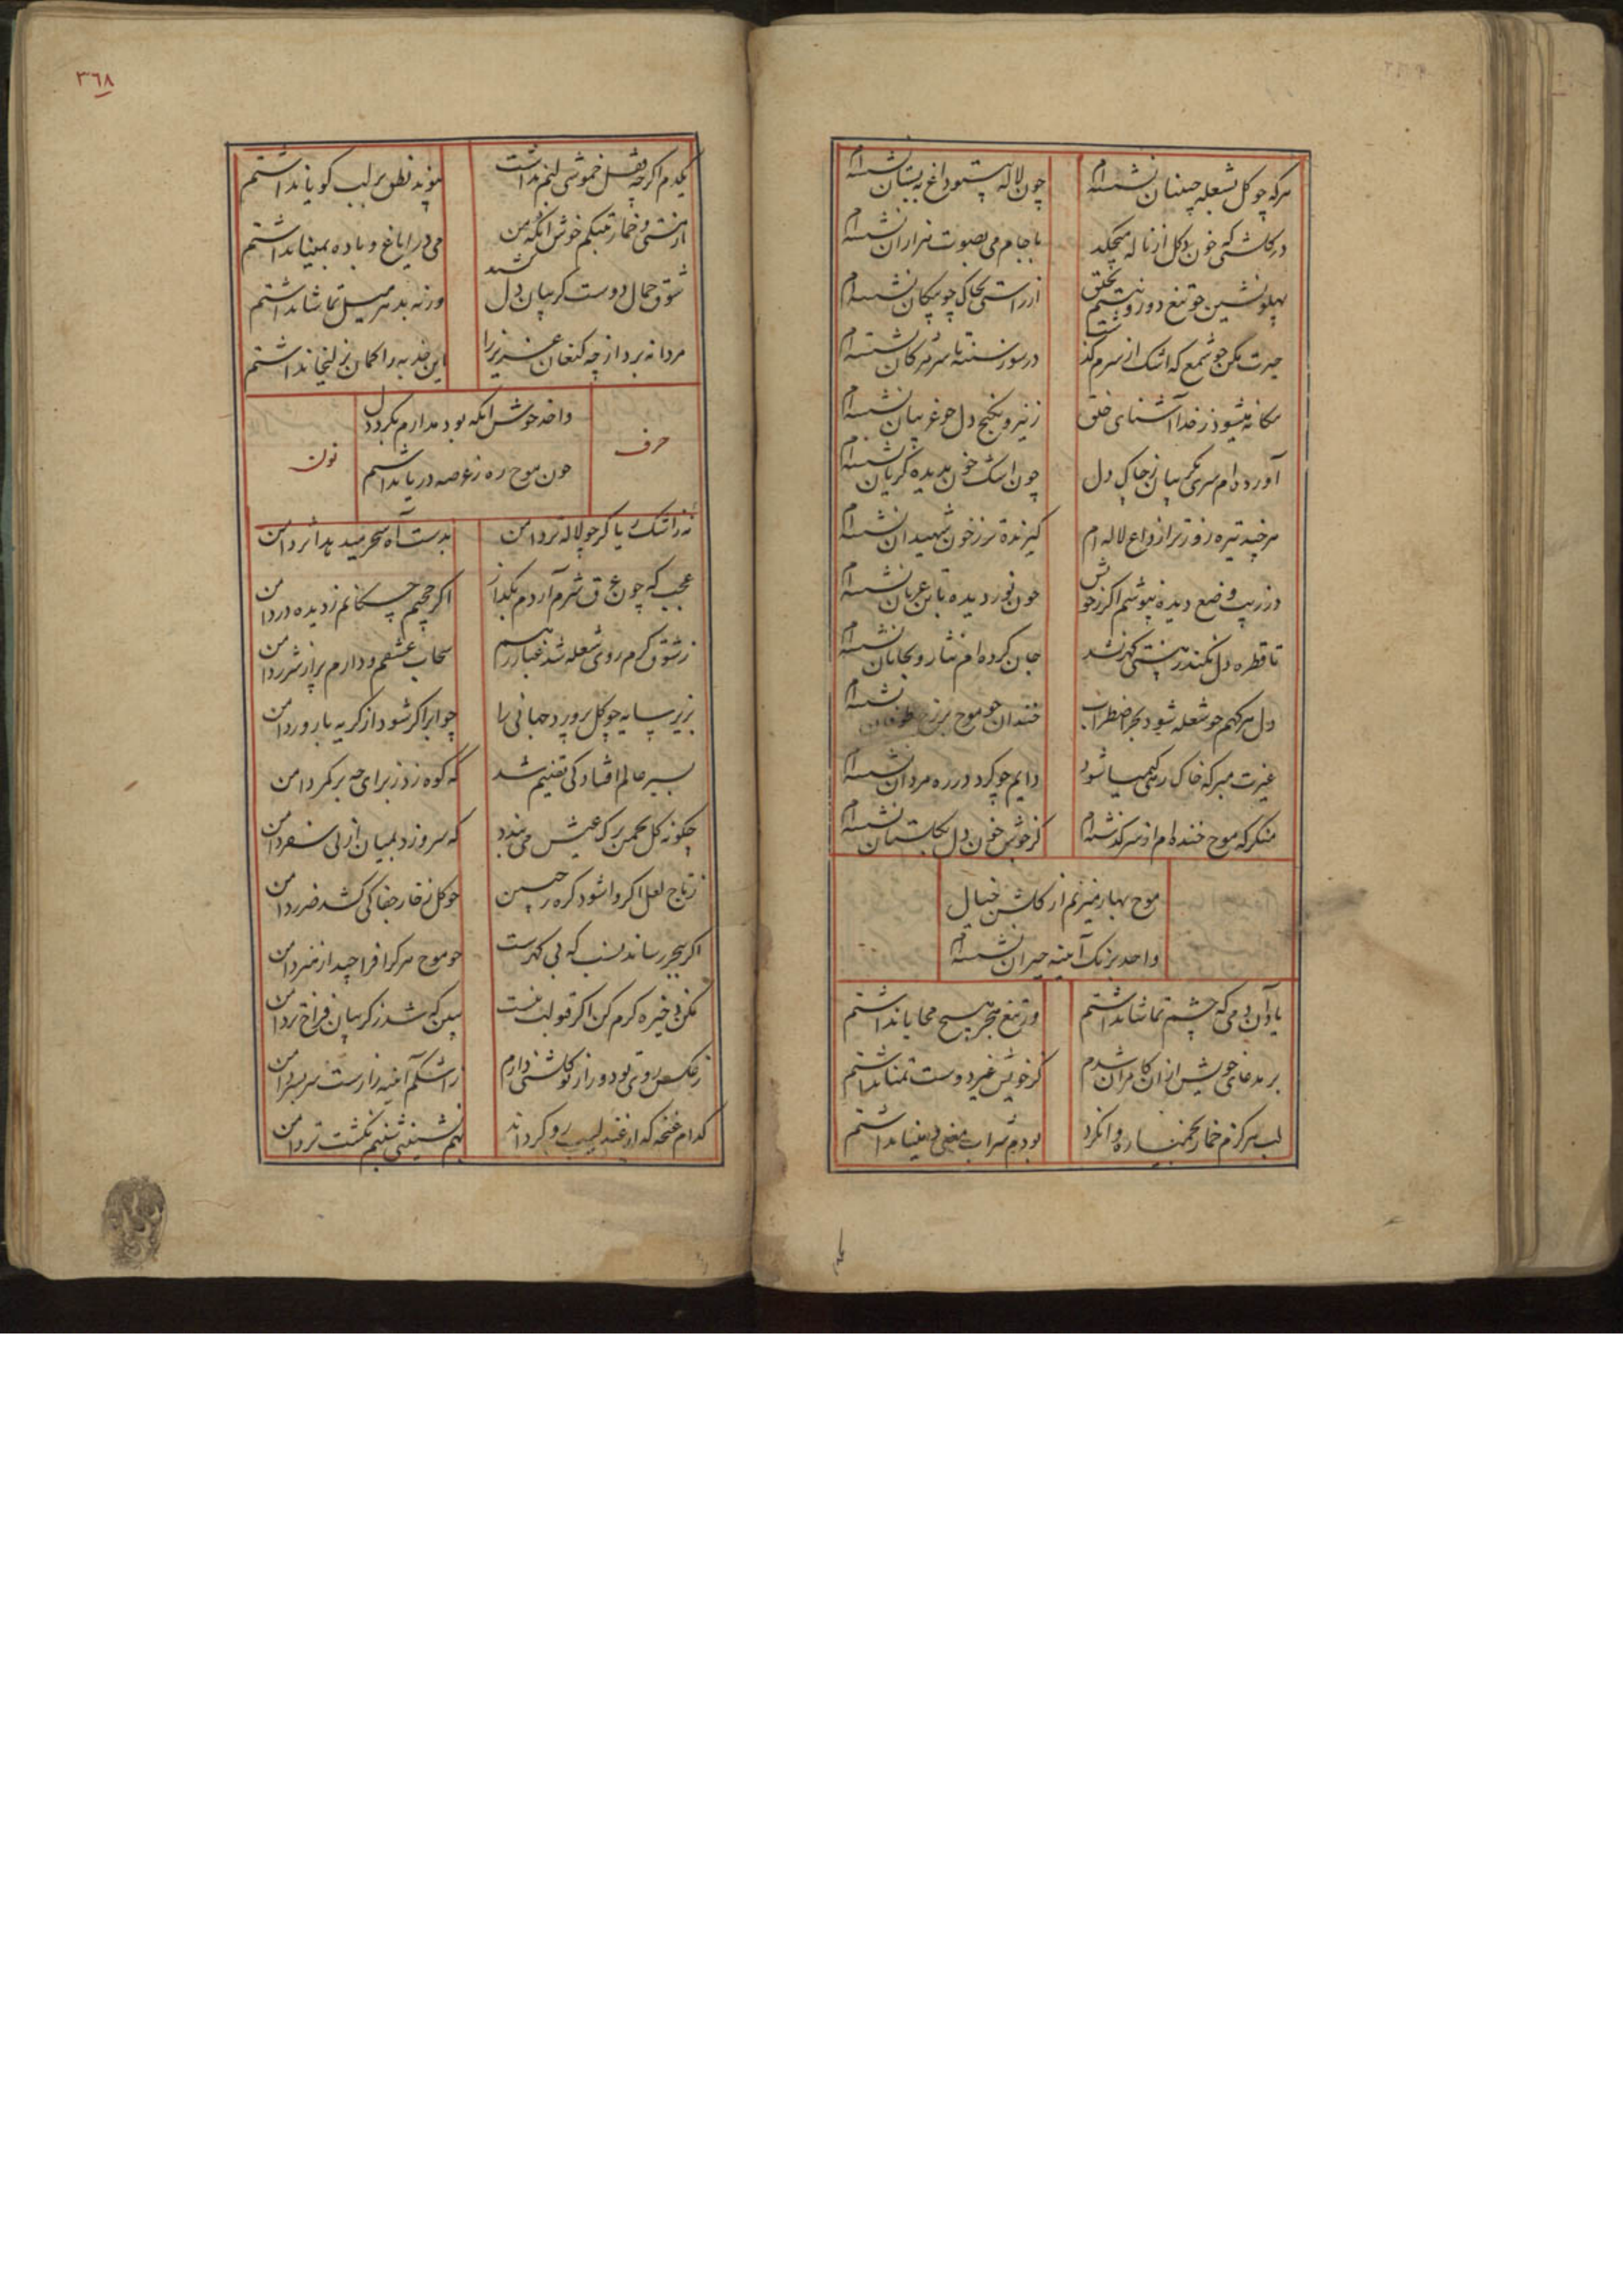 هرکه چو کل بشعله چینان نشسته‌ام چون لاله داغ به بستان نشسته‌ام
در کلشنی که خون دل کل از ناله میچکد با جام می بصوت هزاران نشسته‌ام
پهلونشین چو تیغ دورو نیستم بخلق از راستی بخاک چو پیکان نشسته‌ام
حیرت مکن چو شمع که اشک از سرم کذشت در سوز سینه تا سر مژکان نشسته‌ام
بیکانه میشود ز خدا آشنای خلق زینرو بکنج دل چو غریبان نشسته‌ام
آورده‌ام سری بکریبان ز چاک دل چون اشک خون بدیده کریان نشسته‌ام
هرچند تیره روزتر از داغ لاله‌ام کیرنده‌تر ز خون شهیدان نشسته‌ام
وضع دیده نپوشم اکر چون نور دیده با تن عریان نشسته‌ام
تا قطره دل نکند ز هستی کهر نشد جان کرده‌ام نثار و بجانان نشسته‌ام
دل هرکهم چو شعله شود بحر اضطراب خندان چو موج بر نشسته‌ام
غیرت مبر که خاک رهی کیمیا شود دایم چو کرد در ره مردان نشسته‌ام
منکر که موج خنده‌ام از سر کذشته‌ام کز جوش خون دل بکلستان نشسته‌ام
موج بهار میزنم از کلشن خیال
واحد برنک آینه حیران نشسته‌ام
یاد آن دمی که چشم تماشا نداشتم وز تیغ هجر هیچ محابا نداشتم
بر مدعای خویش از آن کامران شدم کز خویش غیر دوست تمنا نداشتم
لب هرکزم خمار بخمیازه وا نکرد بودم شراب معنی و مینا نداشتم
یکدم اکرچه قفل خموشی لبم نداشت پیوند نطق بر لب کویا نداشتم
از مستی و خمار خوش آنکه من می در ایاغ و باده بمینا نداشتم
شوق جمال دوست کریبان دل کشید ورنه بدهر میل تماشا نداشتم
مردانه برد از چه کنعان عزیز را این جذبه را کمان ز زلیخا نداشتم
واحد خوش آنکه بود مدارم بکرد دل
چون موج ره ز عرصه دریا نداشتم
حرف نون
نه ز اشک ریا کر چو لاله تر دامن بدست آه سحر میدهد اثر دامن
عجب که چون عرق شرم آردم بکداز اکر چکانم ز دیده در دامن
ز شوق کرم روی شعله شد غبار رهم سحاب عشقم و دارم پر از شرر دامن
بزیر سایه چو کل پرورد جهانی را چو ابر اکر شود از کریه بارور دامن
بسیر عالم افتادکی مقیم شد که کوه زد ز برای چه بر کمر دامن
چکونه کل بچمن برک عیش می‌بندد که سرو زد بمیان از پی سفر دامن
ز تاج لعل اکر وا شود کره ز جبین چو کل ز خار جفا کی کشد ضرر دامن
اکر ببحر رساند نسب که بی کهرست چو موج هرکه فراچید از هنر دامن
مکن ذخیره کرم کن اکر قبولت هست ببین که شد ز کریبان فراخ‌تر دامن
ز عکس روی تو دور از تو کلشنی دارم ز اشکم آینه زارست سربسر دامن
کدام غنچه که از عندلیب رو کرداند بهم‌نشینی شبنم نکشت تر دامن
٣٦٨